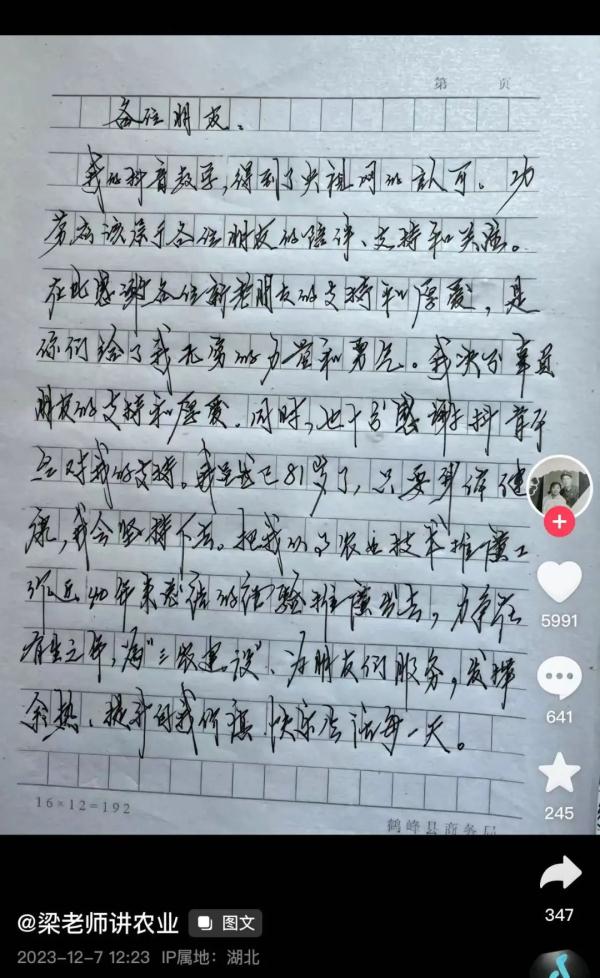 第 页
各位朋友、
我的抖音教学，得到了央视网的认可。功
劳应该属于各位朋友的陪伴、支持和关注。
在此感谢各位新老朋友的支持和厚爱，是
你们给了我无穷的力量和勇气。我决不辜负
朋友的支持和厚爱。同时，也十分感谢抖音平
台对我的支持。我虽然已81岁了，只要身体健
康，我会坚持下去。把我从事农业技术推广工
作近40年来总结的经验推广出去，力争在
有生之年，为"三农建设"、为朋友们服务，发挥
余热、提升自我价值、快乐生活每一天。
16×12=192
鹤峰县商务局
5991
641
245
347
@梁老师讲农业 图文
2023-12-7 12:23 IP属地：湖北